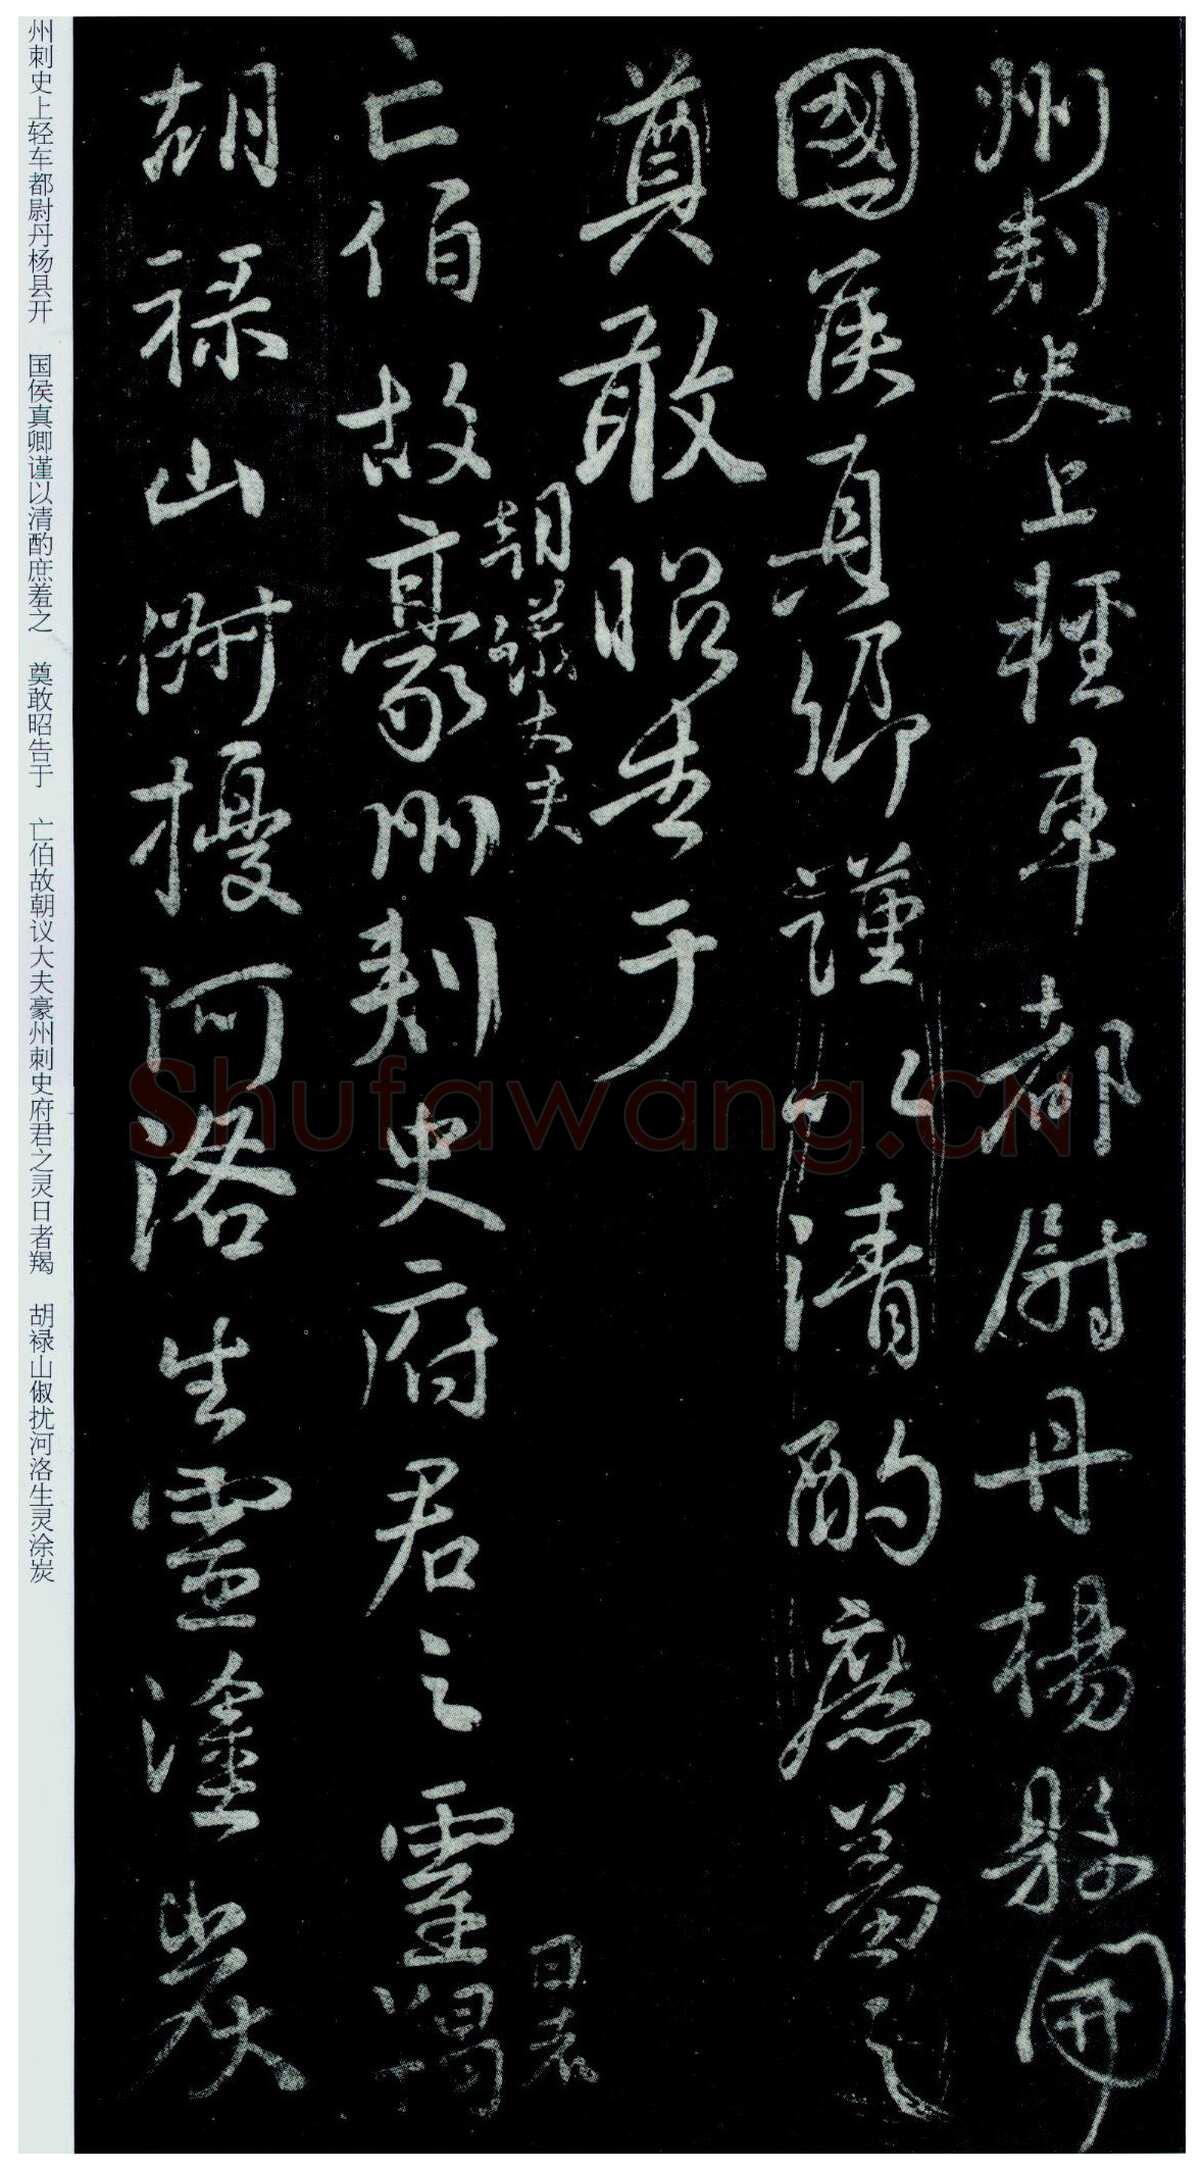 州刺史上輕車都尉丹楊縣開
國侯真卿謹以清酌庶羞之
奠敢昭告于
亡伯故豪州刺史府君之靈羯
朝議大夫
日者
胡禄山俶擾河洛生靈塗炭
州刺史上轻车都尉丹杨县开 国侯真卿谨以清酌庶羞之 奠敢昭告于 亡伯故朝议大夫豪州刺史府君之灵日者羯 胡禄山俶扰河洛生灵涂炭
Shufawang.CN